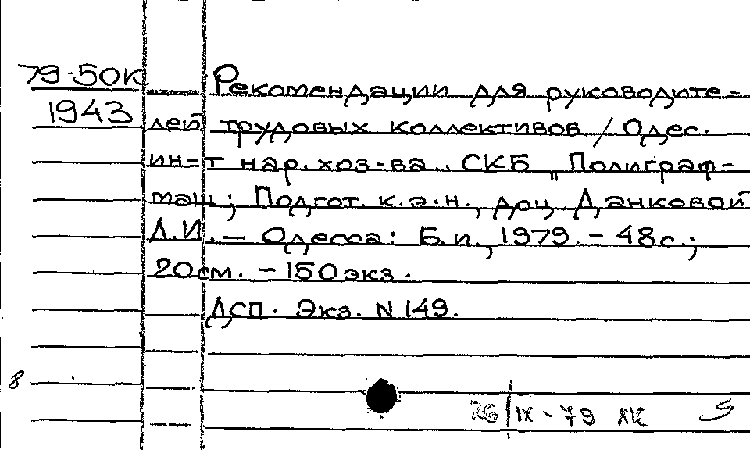 79-50К
1943
Рекомендации для руководите-
лей трудовых коллективов / Одес.
ин-т нар. хоз-ва. СКБ „Полиграф-
маш; Подгот. к.э.н., доц. Данковой
Л.И. – Одесса: Б.и., 1979. – 48с.;
20см. – 150 экз.
ДСП. Экз. N 149.
8
26/IX-79